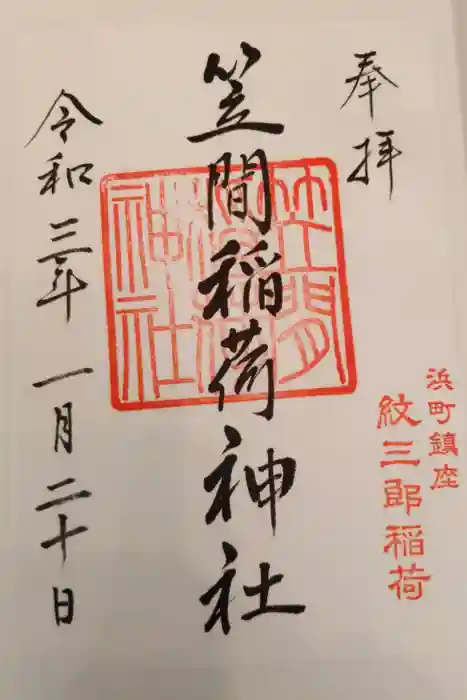 奉拝
浜町鎮座
紋三郎稲荷
笠間稲荷神社
笠間稲荷神社
令和三年 一月二十日